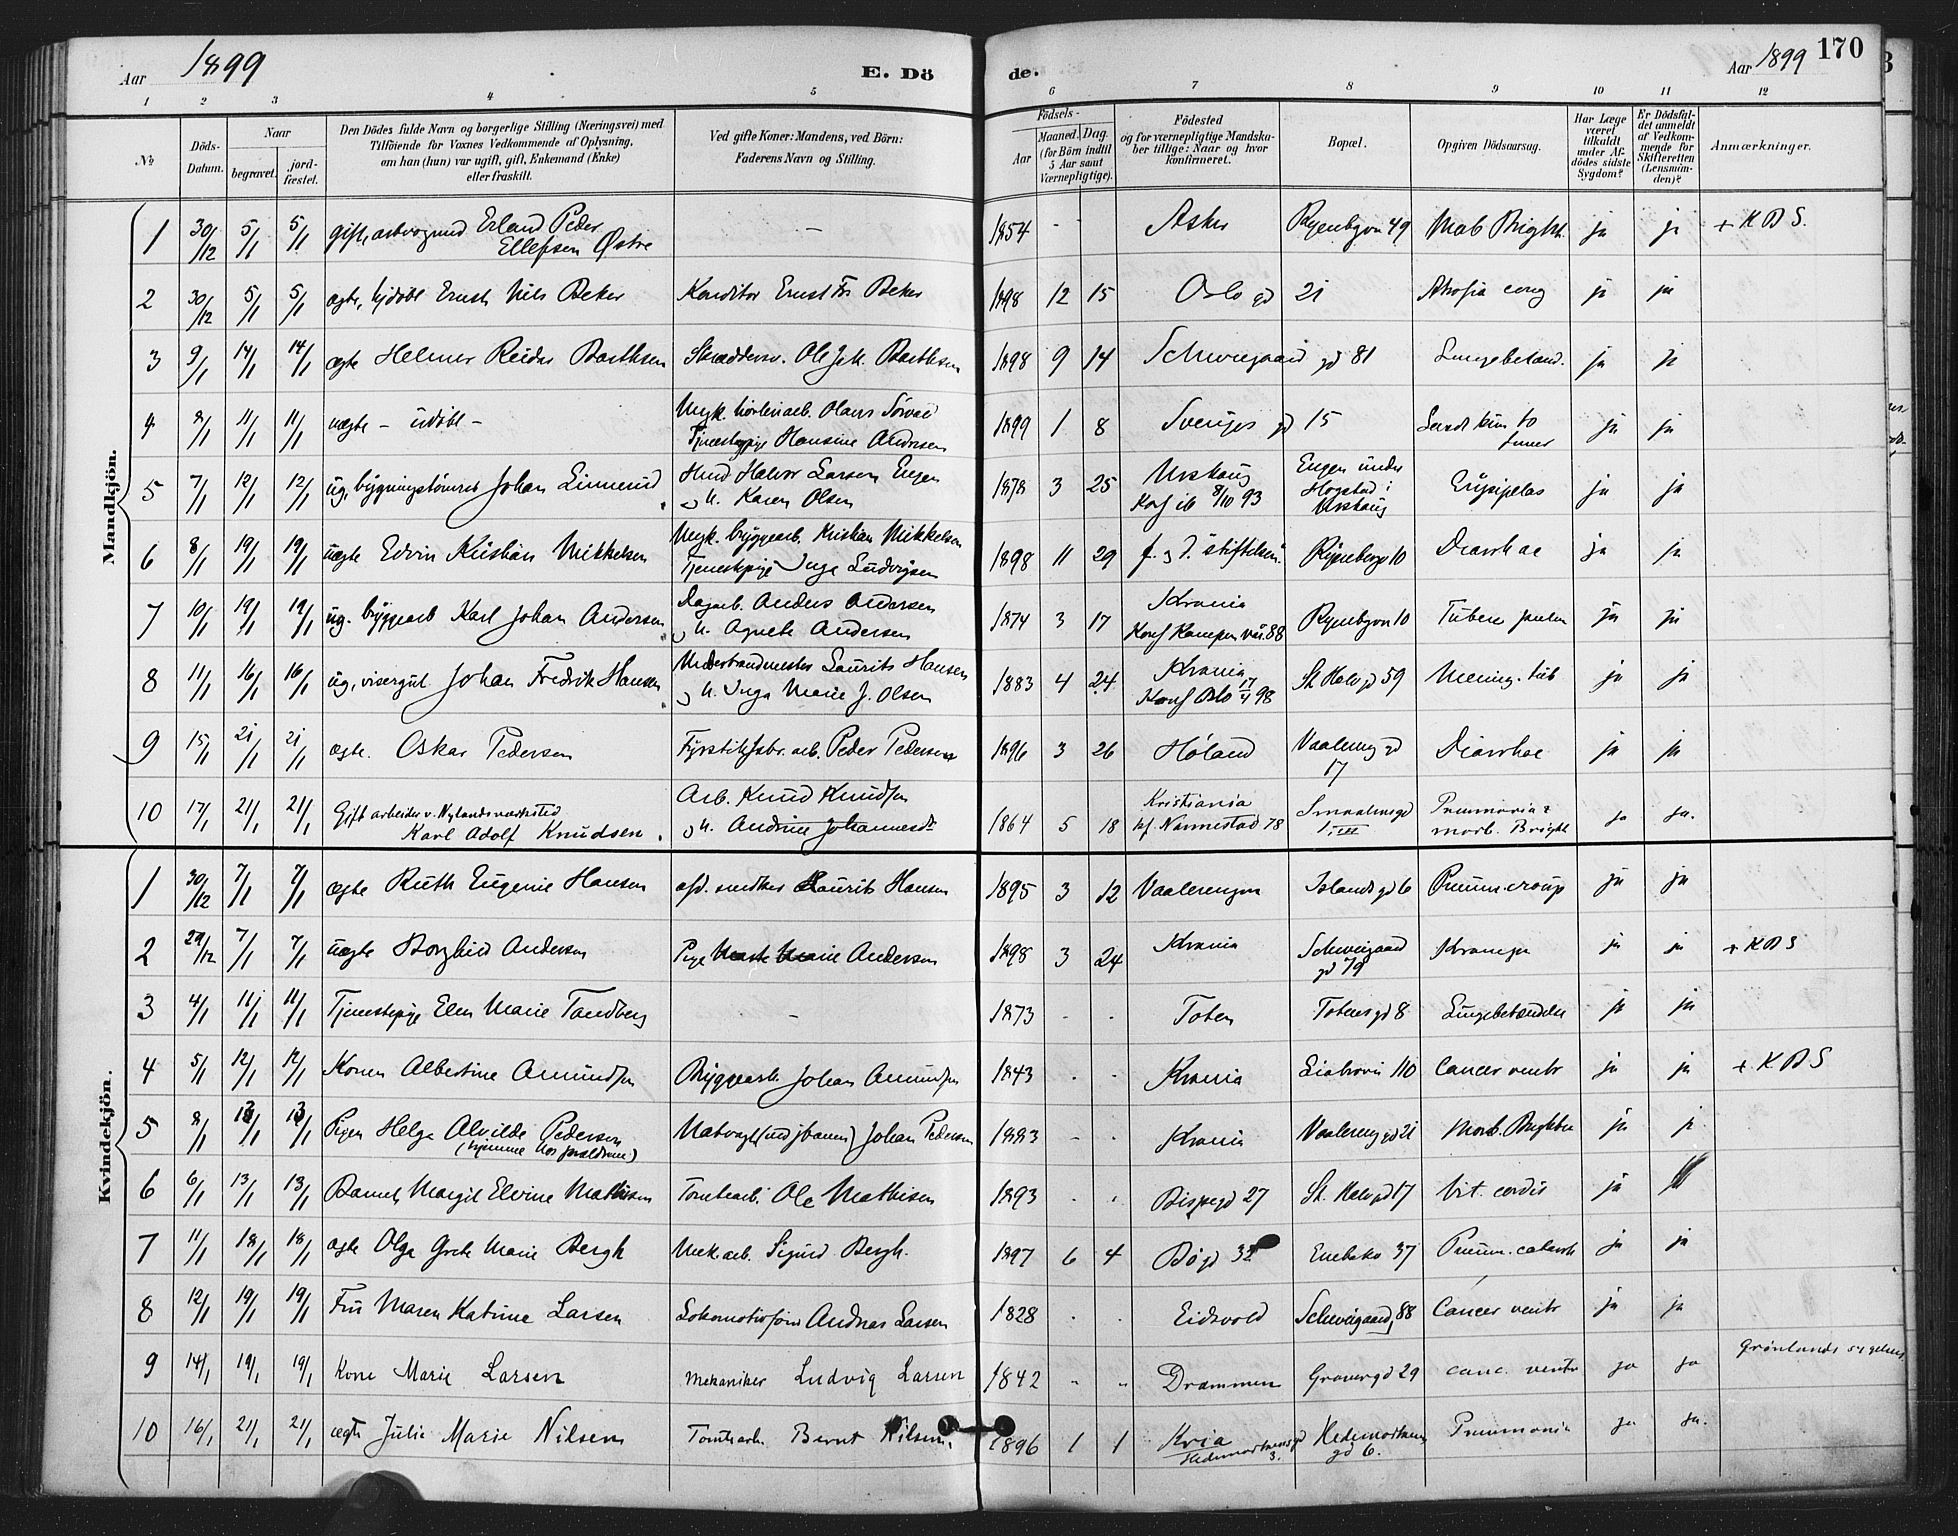 Aar 1899
E. Dö de.
Aar 1899 170
1 2 3 4 5 6 7 8 9 10 11 12
No
Döds-Datum.
Naar
begravet.
jord-fæstet.
Den Dödes fulde Navn og borgerlige Stilling (Næringsvei) med
Tilföiende for Voxnes Vedkommende af Oplysning,
om han (hun) var ugift, gift, Enkemand (Enke)
eller fraskilt.
Ved gifte Koner: Mandens, ved Börn:
Faderens Navn og Stilling.
Födsels-
Aar
Maaned. Dag.
(for Börn indtil
5 Aar samt
Værnepligtige).
Födested
og for værnepligtige Mandska-
ber tillige: Naar og hvor
konfirmeret.
Bopæl.
Opgiven Dödsaarsag.
Har Læge
været
tilkaldt
under Af-
dödes sidste
Sygdom?
Er Dödsfal-
det anmeldt
af Vedkom-
mende for
Skifteretten
(Lensman-
den)?
Anmærkninger.
Mandkjön.
1 30/12 5/1 5/1 Erland Peder Ellefsen Østre — 1854 - - Asker 49 ja ja + K B S.
2 30/12 5/1 5/1 ægte, hjdøbt Ernst Nils Beker Konditor Ernst Fr Beker 1898 12 15 Oslo gd 21 ja ja
3 9/1 14/1 14/1 ægte Helmer Reidar Barthsen Ole Joh. Barthsen 1898 9 14 Schweigaard gd 81 Lungebetænd. ja ja
4 8/1 11/1 11/1 uægte - udøbt - Tjenestepige Hansine Andersen 1899 1 8 Sveriges gd 15 ja ja
5 7/1 12/1 12/1 ug, bygningstømrer Johan Linnerud Halvor Larsen Engen
o h. Karen Olsen 1878 3 25 Urskoug
Konf ib 8/10 93 Engen under
Hogstad i
Urskoug Erysipelas ja ja
6 8/1 19/1 19/1 uægte Edvin Kristian Mikkelsen Ungk. bryggearb. Kristian Mikkelsen
Tjenestepige Inga Ludvigsen 1898 11 29 f. 3 d. "stiftelsen" Rynberg 10 Diarrhae ja ja
7 10/1 19/1 19/1 ug. bryggearb Karl Johan Andersen Dagarb. Anders Andersen
o h. Agnethe Andersen 1874 3 17 Krania
Konf Kampen vår. 88 Rynbgvn 10 ja ja
8 11/1 16/1 16/1 ug, visergut Johan Fredrik Hansen Laurits Hansen
o h. Inga Marie J. Olsen 1883 4 24 Krania
Konf Oslo 17/4 98 St Halv gd 59 Mening. tub ja ja
9 15/1 21/1 21/1 ægte. Oskar Pedersen Fyrstikfabr. arb. Peder Pedersen 1896 3 26 Høland Vaalereng gd
17 Diarrhae ja ja
10 17/1 21/1 21/1 Gift arbeider v. Nylands værksted
Karl Adolf Knudsen. Arb. Knud Knudsen
o h. Andrine Johannesdr 1864 5 18 Kristiania
kf. Nannestad 78 Smaalensgd
1, III Pneumonia &
morb. Bright ja ja.
Kvindekjön.
1 30/12 7/1 7/1 ægte Ruth Eugenie Hansen afd. snedker Laurits Hansen 1895 3 12 Vaalerengen Islands gd 6 Pneum. croup ja ja
2 29/12 7/1 7/1 uægte Borghild Andersen Pige Marie Andersen 1898 3 24 Krania Schweigaard
gd 79 Krampe ja ja + K B S
3 4/1 11/1 11/1 Tjenestepige Elen Marie Tandberg - 1873 - - Toten Totensgd 8 Lungebetændelse ja ja
4 5/1 12/1 12/1 Konen Albertine Amundsen Bryggearb. Johan Amundsen 1843 - - Krania 110 Cancer ventr ja ja + K B S
5 8/1 13/1 13/1 Pigen Helga Alvilde Pedersen
(hjemme hos forældrene) Natvagt (ved jbanen) Johan Pedersen 1883 - - Krania Vaalereng gd 21 Morb. Brightii ja ja
6 6/1 13/1 13/1 Barnet Margit Elvine Mathisen Tomtearb. Ole Mathisen 1893 . . Bispegd 27 St. Halv gd 17 Vit. cordis ja
7 11/1 18/1 18/1 ægte Olga Grete Marie Bergh Mek arb. Sigurd Bergh. 1897 6 4 Bøgd Enebakv 37 Pneum. catarrh ja ja
8 12/1 19/1 19/1 Fru Maren Katrine Larsen Andreas Larsen 1828 . . Eidsvold Schweigaardg 88 Cancer ventr ja ja
9 14/1 19/1 19/1 Kone Marie Larsen Mekaniker Ludvig Larsen 1842 - " Drammen Grønergd 29 canc. ventr ja ja Grønlands sygehus
10 16/1 21/1 21/1 ægte Julie Marie Nilsen Tomtearb. Bernt Nilsen. 1896 1 1 Kria
Hedemarkensgd
3. Hedemarkens
gd 6. Pneumonia ja ja.